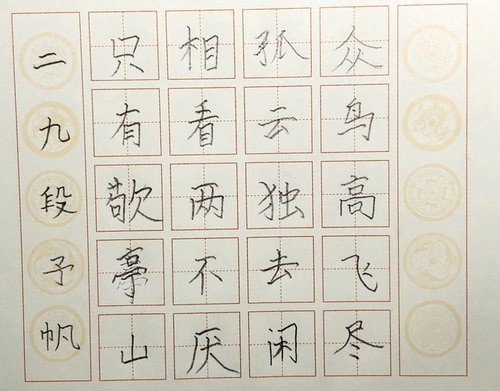 众鸟高飞尽
孤云独去闲
相看两不厌
只有敬亭山
二九段予帆